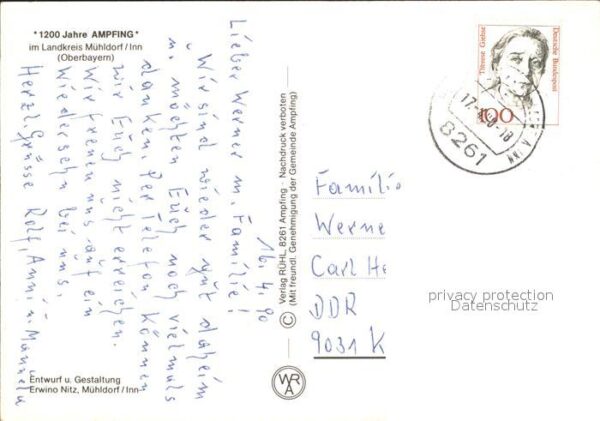 *1200 Jahre AMPFING*
im Landkreis Mühldorf/Inn
(Oberbayern)
16.4.90
Lieber Werner m. Familie!
Wir sind wieder gut daheim
u. möchten Euch noch vielmals
danken. Per Telefon können
wir Euch nicht erreichen.
Wir freuen uns auf ein
Wiedersehn bei uns.
Herzl. Grüsse Rolf, Anni u. Manuela
Entwurf u. Gestaltung
Erwino Nitz, Mühldorf/Inn
© Verlag RÜHL, 8261 Ampfing - Nachdruck verboten
(Mit freundl. Genehmigung der Gemeinde Ampfing)
WRA
Therese Giehse
Deutsche Bundespost
100
8261
Familie
Werne
Carl He
DDR
9031 K
privacy protection
Datenschutz